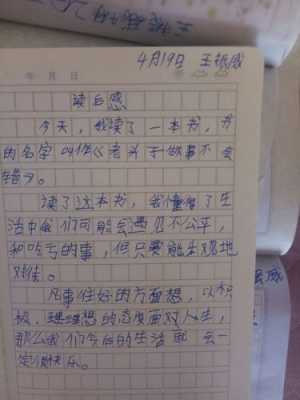 4月19日 王银威
年 月 日
读后感
今天,我读了一本书,书
的名字叫作《老头子做事不会
错》。
读了这本书,我懂得了生
活中我们可能会遇见不公平,
和吃亏的事,但只要能乐观地
对待。
凡事往好的方面想,以积
极、理想的态度面对人生,
那么我们今后的生活就会一
定很快乐。